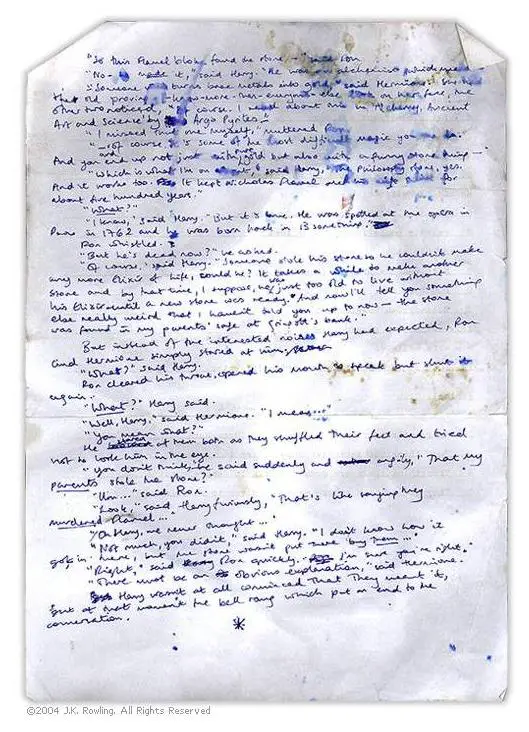 "So this Flamel bloke found the stone -" said Ron.
"No - made it," said Harry. "He was an alchemist
"Someone who turns base metals into gold," said Hermione.
the old
other two noticed. "Of course. I read about him in "Alchemy, Ancient
Art and Science" by Argo Pyrites -"
"I missed that one myself," muttered Ron.
"- of course, it's some of the most difficult magic you can
And you end up not just with pure gold but also with a funny stone thing -"
"Which is what I'm on about," said Harry, "the Philosopher's stone, yes.
And it works too. It kept Nicholas Flamel and his wife alive for
about five hundred years."
"What?"
"I know," said Harry. "But it's true. He was spotted at the opera in
Paris in 1762 and he was born back in 13 something."
Ron whistled.
"But he's dead now?" he asked.
"Of course," said Harry. "Someone stole his stone so he couldn't make
any more Elixir of Life, could he? It takes a while to make another
stone and by that time, I suppose, he was just too old to live without
his Elixir until a new stone was ready. And now I'll tell you something
else really weird that I haven't told you up to now - the stone
was found in my parents' safe at Gringott's bank."
But instead of the interested noises Harry had expected, Ron
and Hermione simply stared at him.
"What?" said Harry.
Ron cleared his throat, opened his mouth to speak but shut it
again.
"What?" Harry said.
"Well, Harry," said Hermione. "I mean..."
"You mean what?"
He stared at them both as they shuffled their feet and tried
not to look him in the eye.
"You don't think," he said suddenly and angrily, "That my
parents stole the stone?"
"Um..." said Ron.
"Look," said Harry furiously, "That's like saying they
murdered Flamel...
"Oh Harry, we never thought..."
"Not much, you didn't," said Harry. "I don't know how it
got in there, but the stone wasn't put there by them..."
"Right," said Ron quickly. "I'm sure you're right."
"There must be an obvious explanation," said Hermione.
Harry wasn't at all convinced that they meant it,
but at that moment the bell rang which put an end to the
conversation.
*
©2004 J.K. Rowling. All Rights Reserved